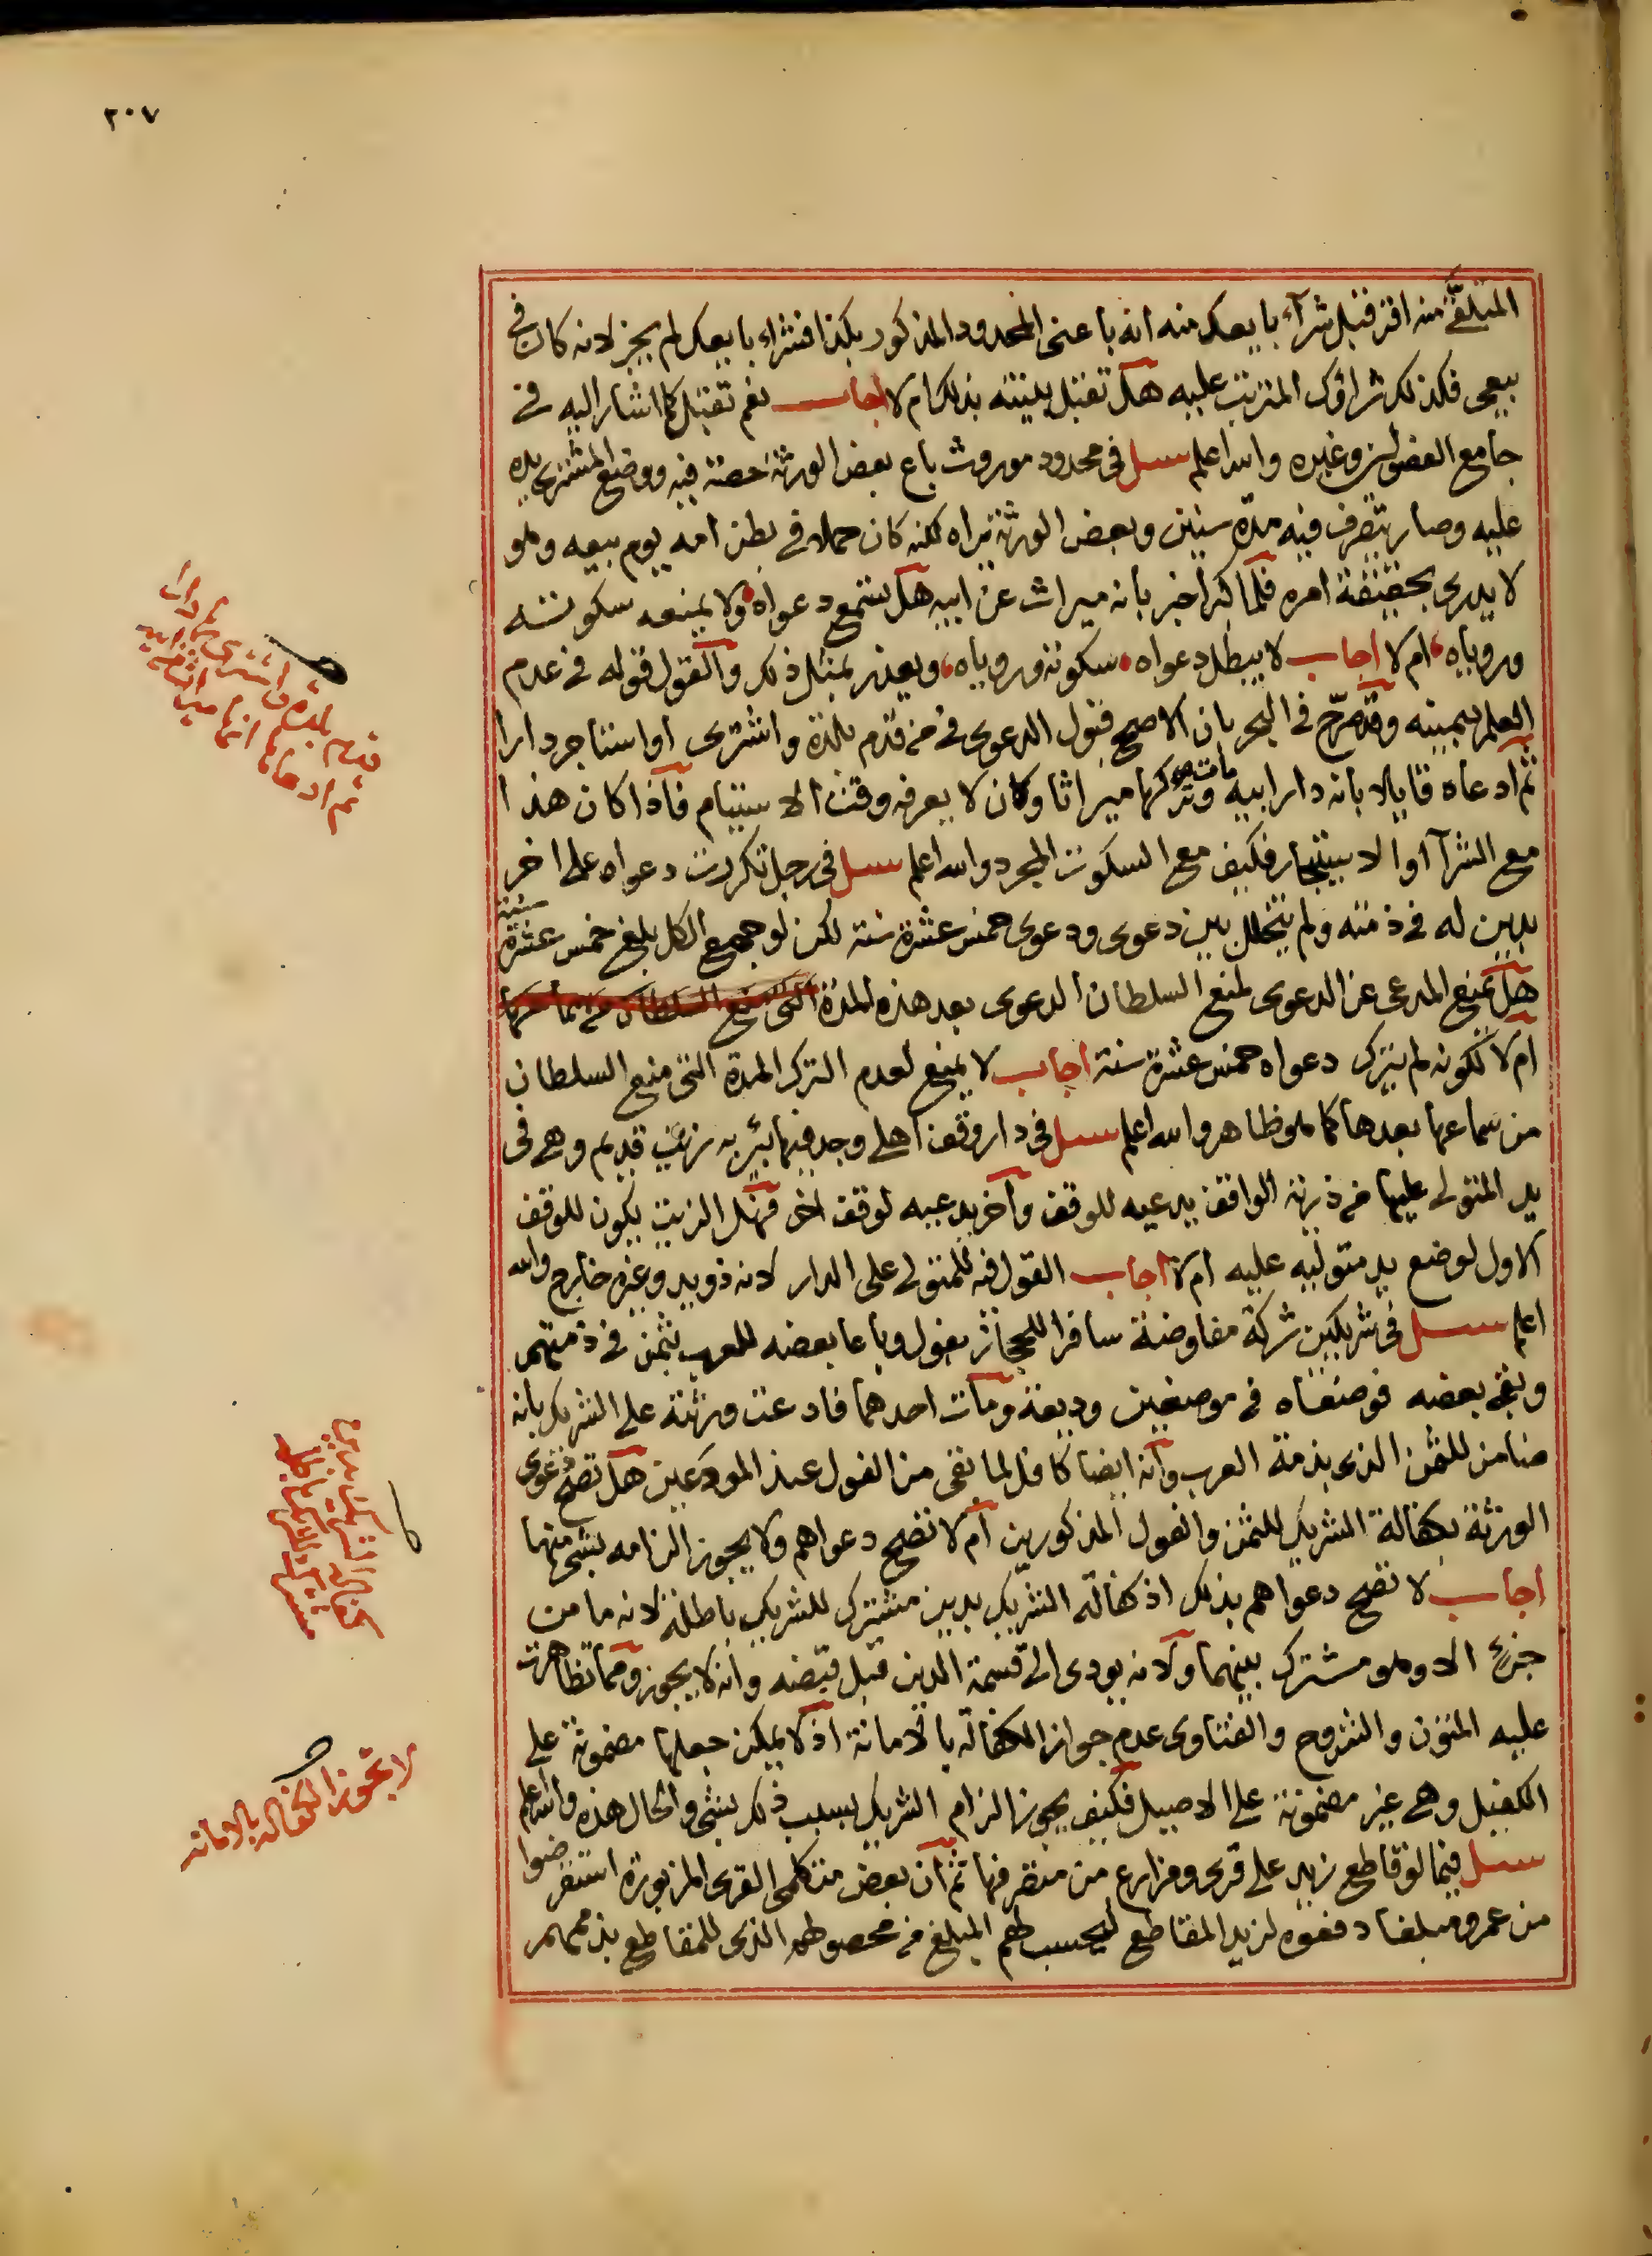 ٢٠٧
المتلقى منه اقر قبل شرآء بايعك منه انه باعنى المحدود المذكور بكذا فشراء بايعك لم يجز لانه كان فى
بيعى فكذلك شراؤك المترتب عليه هل تقبل بينته بذلك ام لا اجاب نعم تقبل كما اشار اليه فى
جامع الفصولين وغيره والله اعلم سىل فى محدود موروث باع بعض الورثة حصته فيه ووضع المشترى يده
عليه وصار يتصرف فيه مدة سنين وبعض الورثة يراه لكنه كان حملا فى بطن امه يوم بيعه وهو
لا يدرى بحقيقة امره فلما كبر اخبر بانه ميراث عن ابيه هل تسمع دعواه ولا يمنعه سكوته
وروياه ام لا اجاب لا يبطل دعواه سكوته وروياه ويعذر بمثل ذلك والقول قوله فى عدم
العلم بيمينه وقد صرّح فى البحر بان الاصح قبول الدعوى فى من قدم بلدة واشترى او استاجر دارا
ثم ادعاه قايلا بانه دار ابيه مات وتركها ميراثا وكان لا يعرفه وقت الاستيام فاذا كان هذا
مع الشرآ او الاستيجار فكيف مع السكوت المجرد والله اعلم سىل فى رجل تكررت دعواه على اخر
بدين له فى ذمته ولم يتخلل بين دعوى ودعوى خمس عشرة سنة لكن لو جمع الكل بلغ خمس عشرة سنة
هل يمنع المدعى عن الدعوى لمنع السلطان الدعوى بعد هذه المدة التى منع السلطان من سماعها
ام لا لكونه لم يترك دعواه خمس عشرة سنة اجاب لا يمنع لعدم الترك المدة التى منع السلطان
من سماعها بعدها كما هو ظاهر والله اعلم سىل فى دار وقف اهلى وجد فيها بئر به زيت قديم وهى فى
يد المتولى عليها من ذرية الواقف يدعيه للوقف وآخر يدعيه لوقف اخر فهل الزيت يكون للوقف
الاول لوضع يد متوليه عليه ام لا اجاب القول فيه للمتولى على الدار لانه ذو يد وغيره خارج والله
اعلم سىل فى شريكين شركة مفاوضة سافرا للحجاز بفول وباعا بعضه للعرب بثمن فى ذمتهم
وبقى بعضه فوضعاه فى موضعين وديعة ومات احدهما فادعت ورثته على الشريك بانه
ضامن للثمن الذى بذمة العرب وانه ايضا كافل لما بقى من الفول عند المودعين هل تصح دعوى
الورثة بكفالة الشريك للثمن والفول المذكورين ام لا تصح دعواهم ولا يجوز الزامه بشىء منها
اجاب لا تصح دعواهم بذلك اذ كفالة الشريك بدين مشترك للشريك باطلة لانه ما من
جزئ الا وهو مشترك بينهما ولانه يودى الى قسمة الدين قبل قبضه وانه لا يجوز ومما تظاهرت
عليه المتون والشروح والفتاوى عدم جواز الكفالة بالامانة اذ لا يمكن جعلها مضمونة على
الكفيل وهى غير مضمونة على الاصيل فكيف يجوز الزام الشريك بسبب ذلك بشىء والحال هذه والله اعلم
سىل فيما لو قاطع زيد على قرى ومزارع من متصرفها ثم ان بعض متكلمى القرى المزبورة استقرضوا
من عمرو مبلغا دفعوه لزيد المقاطع ليحسب لهم المبلغ من محصولهم الذى للمقاطع بذممهم
قدم بلدة واشترى دارا
ثم ادعاها انها ميراث ابيه
لا تجوز الكفالة بالامانة